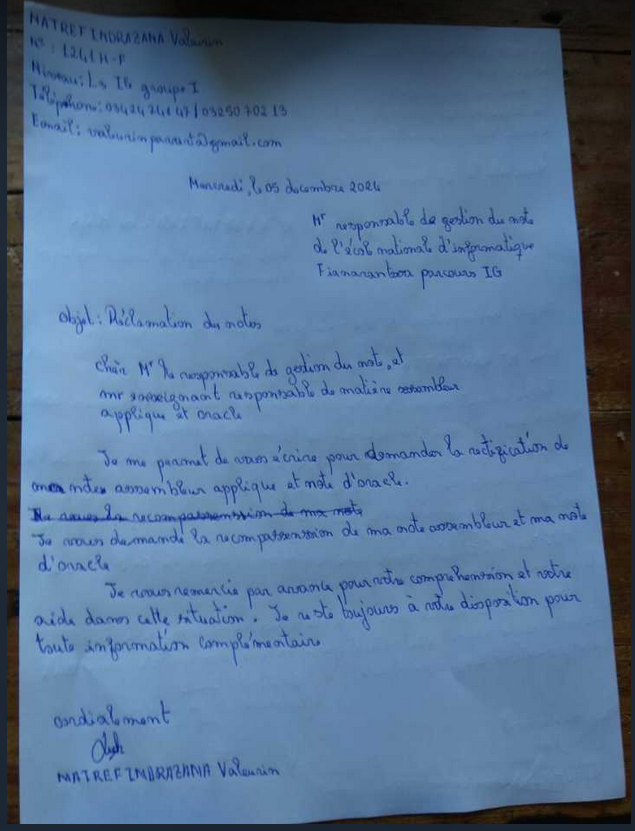 MATREFINDRAZANA Valeurin
N° : 1241 H-F
Niveau : L3 IG groupe I
Téléphone : 0342474147 / 0325070213
Email : @gmail.com
Mercredi, le 05 decembre 2024
Mr responsable de gestion du note
de l'écol national d'informatique
Fianarantsoa parcours IG
Objet : Réclamation du notes
chèr Mr le responsable de gestion du note, et
mr enseignant responsable de matière assembleur
applique et oracle
Je me permet de vous écrire pour demander la rectification de
ma note assembleur applique et note d'oracle.
Je vous la recompassenssion de ma note
Je vous demande la recompassenssion de ma note assembleur et ma note
d'oracle
Je vous remercie par avance pour votre compréhenssion et votre
aide dans cette situation. Je reste toujours à votre disposition pour
toute information complémentaire
cordialement
MATREFINDRAZANA Valeurin